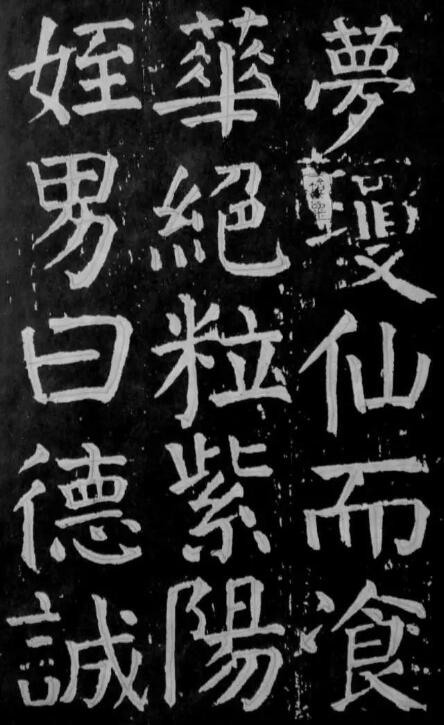 夢瓊仙而飡
華絕粒紫陽
姪男曰德誠